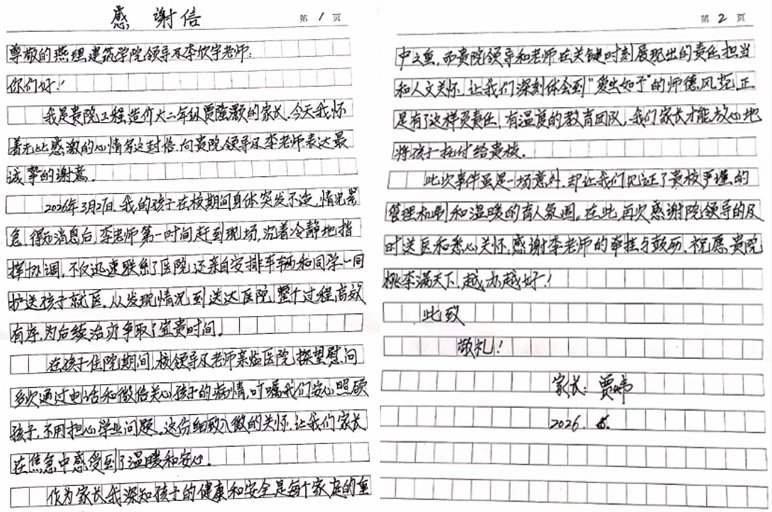 感谢信
第 1 页
尊敬的燕理建筑学院领导及李欣宇老师:
你们好!
我是贵院工程造价大二年级贾隆灏的家长,今天我怀
着无比感激的心情写这封信,向贵院领导及李老师表达最
诚挚的谢意。
2026年3月27日,我的孩子在校期间身体突发不适,情况紧
急,得知消息后,李老师第一时间赶到现场,沉着冷静地指
挥协调,不仅迅速联系了医院,还亲自安排车辆和同学一同
护送孩子就医。从发现情况到送达医院,整个过程高效
有序,为后续治疗争取了宝贵时间。
在孩子住院期间,校领导及老师亲临医院探望慰问
多次通过电话和微信关心孩子的病情,叮嘱我们安心照顾
孩子,不用担心学业问题。这份细致入微的关怀,让我们家长
在焦急中感受到了温暖和安心。
作为家长,我深知孩子的健康和安全是每个家庭的重
第 2 页
中之重,而贵院领导和老师在关键时刻展现出的责任担当
和人文关怀,让我们深刻体会到"爱生如子"的师德风范,正
是有了这样负责任、有温度的教育团队,我们家长才能放心地
将孩子托付给贵校。
此次事件虽是一场意外,却让我们见证了贵校严谨的
管理机制和温暖的育人氛围。在此,再次感谢院领导的及
时送医和悉心关怀,感谢李老师的牵挂与鼓励,祝愿贵院
桃李满天下,越办越好!
此致
敬礼!
家长:贾
2026.